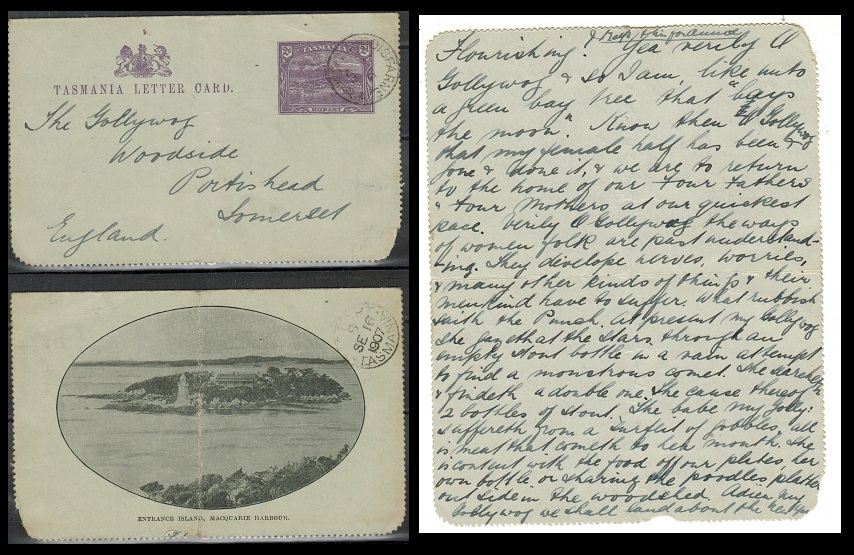 TASMANIA
2d 2d
HOBART
TASMANIA LETTER CARD.
The Gollywog
Woodside
Portishead
Somerset
England.
SE 16
1907
TASMANIA
ENTRANCE ISLAND, MACQUARIE HARBOUR.
Flourishing! Yea verily O
Gollywog & so I am, like unto
a green bay tree that "bays
the moon". Know then O Gollywog
that my female half has been &
gone & done it, & we are to return
to the home of our Four Fathers
& Four Mothers at our quickest
pace. Verily O Gollywog the ways
of women folk are past understand-
-ing. They develope nerves, worries,
& many other kinds of things & their
menkind have to suffer. What rubbish
saith the Punch. At present my Gollywog
she gazeth at the stars through an
empty stout bottle in a vain attempt
to find a monstrous comet. She searcheth
& findeth a double one. The cause thereof
2 bottles of stout. The babe my Golly:
suffereth from a surfeit of pobbles, all
is meat that cometh to her mouth. She
is content with the food off our plates, her
own bottle or sharing the poodles platter
outside in the woodshed. Adieu my
Gollywog we shall land about the